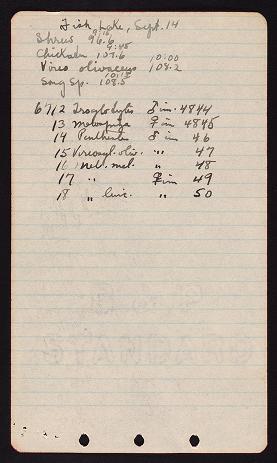 Fish Lake, Sept. 14
Shrew 96.6 9:15
Chickadee 107.6 9:45 10:00
Vireo olivaceus 108.2
Song Sp. 108.5 10:15
6712 Troglodytes ♂ im. 4844
13 Melospiza ♀ im 4845
14 Penthestes ♂ im 46
15 Vireosyl. oliv. " " 47
16 Mel. mel. " 48
17 " ♀ im 49
18 " linc. " 50